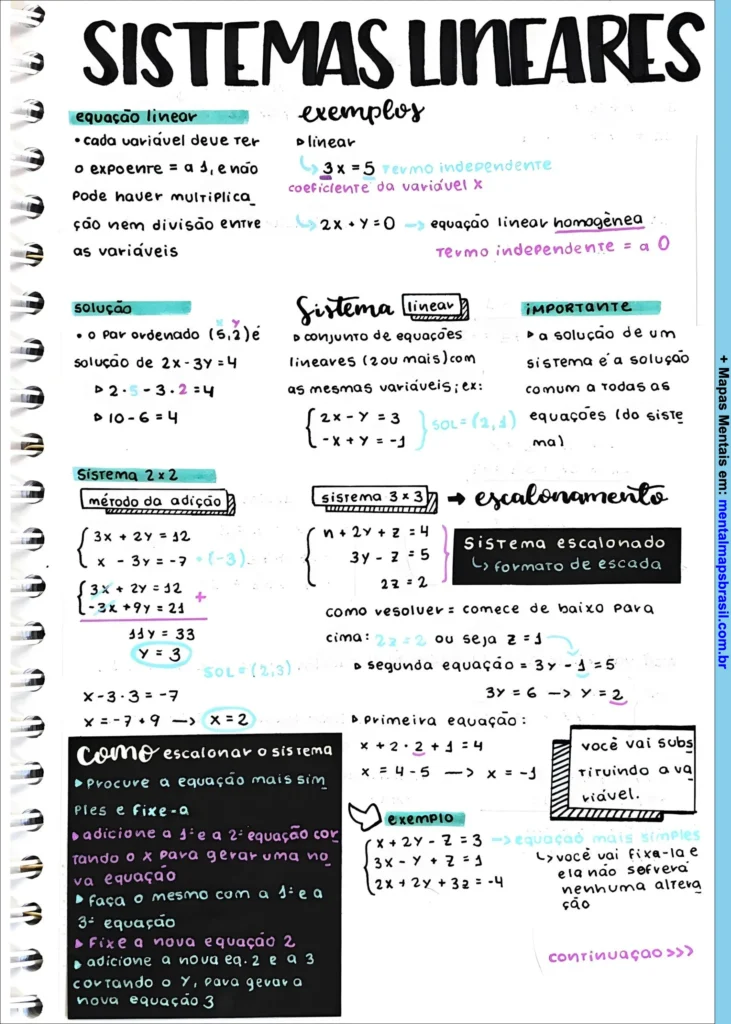 SISTEMAS LINEARES
equação linear
• cada variável deve ter
o expoenre = a 1, e não
pode haver multiplica_
ção nem divisão entre
as variáveis
exemplos
▹ linear
↳ 3x = 5 termo independente
coeficiente da variável x
↳ 2x + y = 0 → equação linear homogênea
termo independente = a 0
solução
x y
• o par ordenado (5,2) é
solução de 2x - 3y = 4
▹ 2 · 5 - 3 · 2 = 4
▹ 10 - 6 = 4
Sistema linear
▹ conjunto de equações
lineares (2 ou mais) com
as mesmas variáveis; ex:
2x - y = 3
-x + y = -1
SOL = (2,1)
importante
▹ a solução de um
sistema é a solução
comum a todas as
equações (do siste
ma)
Sistema 2x2
método da adição
3x + 2y = 12
x - 3y = -7 · (-3)
3x + 2y = 12 +
-3x + 9y = 21
11y = 33
y = 3
SOL = (2,3)
x - 3·3 = -7
x = -7 + 9 → x = 2
sistema 3x3 → escalonamento
n + 2y + z = 4
3y - z = 5
2z = 2
Sistema escalonado
↳ formato de escada
como resolver = comece de baixo para
cima: 2z = 2 ou seja z = 1
▹ segunda equação = 3y - 1 = 5
3y = 6 → y = 2
▹ Primeira equação:
x + 2 · 2 + 1 = 4
x = 4 - 5 → x = -1
você vai subs
tituindo a va
riável.
Como escalonar o sistema
▸ Procure a equação mais sim
ples e fixe-a
▸ adicione a 1ª e a 2ª equação cor
tando o x para gerar uma no
va equação
▸ faça o mesmo com a 1ª e a
3ª equação
▸ Fixe a nova equação 2
▸ adicione a nova eq. 2 e a 3
cortando o y, para gerar a
nova equação 3
exemplo
x + 2y - z = 3 → equação mais simples
3x - y + z = 1
2x + 2y + 3z = -4
↳ você vai fixa-la e
ela não sofrerá
nenhuma altera
ção
continuação >>>
+ Mapas Mentais em: mentalmapsbrasil.com.br